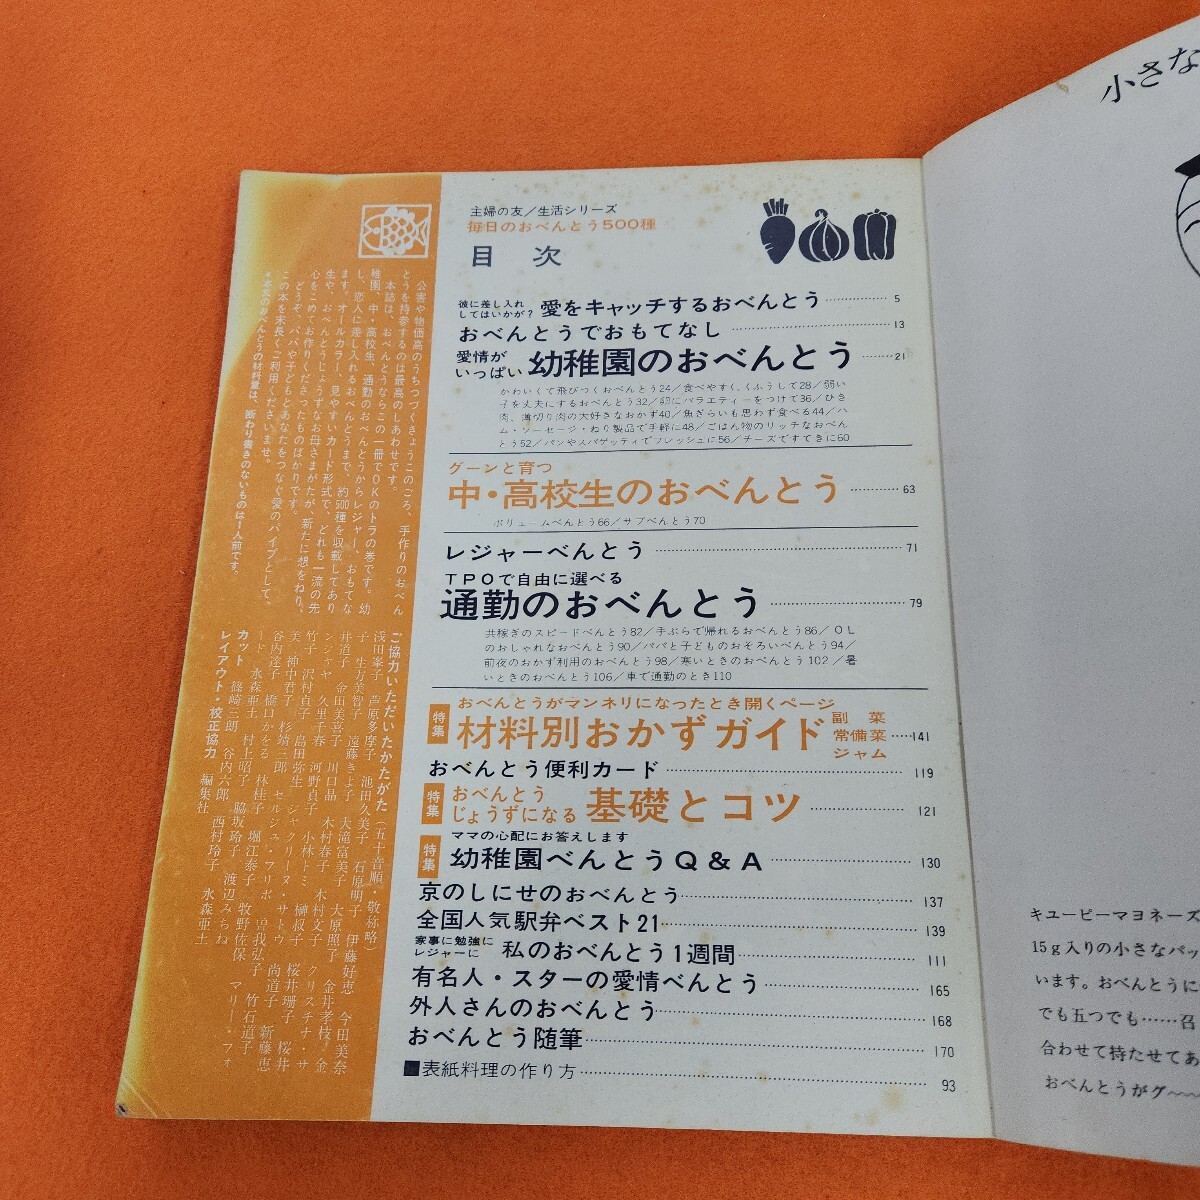 主婦の友/生活シリーズ
毎日のおべんとう500種
目次
彼に差し入れ
してはいかが? 愛をキャッチするおべんとう 5
おべんとうでおもてなし 13
愛情が
いっぱい 幼稚園のおべんとう 21
かわいくて飛びつくおべんとう24/食べやすく、くふうして28/弱い
子を丈夫にするおべんとう32/卵にバラエティーをつけて36/ひき
肉、薄切り肉の大好きなおかず40/魚ぎらいも思わず食べる44/ハ
ム・ソーセージ・ねり製品で手軽に48/ごはん物のリッチなおべん
とう52/パンやスパゲッティでフレッシュに56/チーズですてきに60
グーンと育つ
中・高校生のおべんとう 63
ボリュームべんとう66/サブべんとう70
レジャーべんとう 71
TPOで自由に選べる
通勤のおべんとう 79
共稼ぎのスピードべんとう82/手ぶらで帰れるおべんとう86/OL
のおしゃれなおべんとう90/パパと子どものおそろいべんとう94/
前夜のおかず利用のおべんとう98/寒いときのおべんとう102/暑
いときのおべんとう106/車で通勤のとき110
おべんとうがマンネリになったとき開くページ
特集 材料別おかずガイド 副菜 常備菜 ジャム 141
おべんとう便利カード 119
特集 おべんとう
じょうずになる 基礎とコツ 121
ママの心配にお答えします
特集 幼稚園べんとうQ&A 130
京のしにせのおべんとう 137
全国人気駅弁ベスト21 139
家事に勉強に
レジャーに 私のおべんとう1週間 111
有名人・スターの愛情べんとう 165
外人さんのおべんとう 168
おべんとう随筆 170
■表紙料理の作り方 93
公害や物価高のうちつづくきょうこのごろ、手作りのおべん
とうを持参するのは最高のしあわせです。
本誌は、おべんとうならこの一冊でOKのトラの巻です。幼
稚園、中・高校生、通勤のおべんとうからレジャー、おもてな
し、恋人に差し入れるおべんとうまで、約500種を収載してあり
ます。オールカラー、見やすいカード形式で、どれも一流の先
生や、おべんとうじょうずなお母さまがたが、新たに想をねり、
心をこめてお作りくださったものばかりです。
どうぞ、パパや子どもとあなたをつなぐ愛のパイプとして、
この本を末長くご利用くださいませ。
*本文のおべんとうの材料量は、断わり書きのないものは1人前です。
ご協力いただいたかたがた(五十音順・敬称略)
カット
レイアウト・校正協力
小さな
キユーピーマヨネーズ
15g入りの小さなパッ
います。おべんとうに
でも五つでも……召
合わせて持たせてあ
おべんとうがグ〜〜